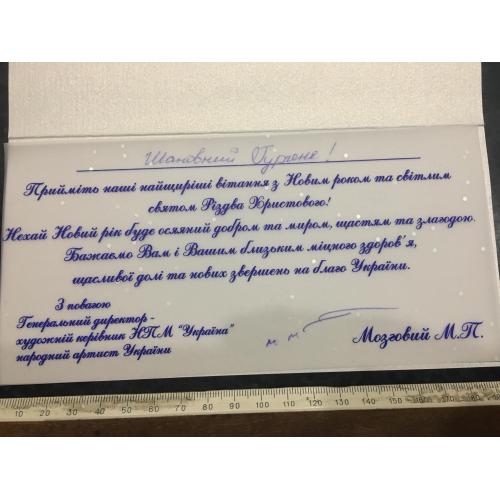 Шановний Гургене!
Прийміть наші найщиріші вітання з Новим роком та світлим
святом Різдва Христового!
Нехай Новий рік буде осяяний добром та миром, щастям та злагодою.
Бажаємо Вам і Вашим близьким міцного здоров'я,
щасливої долі та нових звершень на благо України.
З повагою
Генеральний директор-
художній керівник НПМ "Україна"
народний артист України
М. М.
Мозговий М.П.
10 20 30 40 50 60 70 80 90 100 110 120 130 140 150 160 170 180